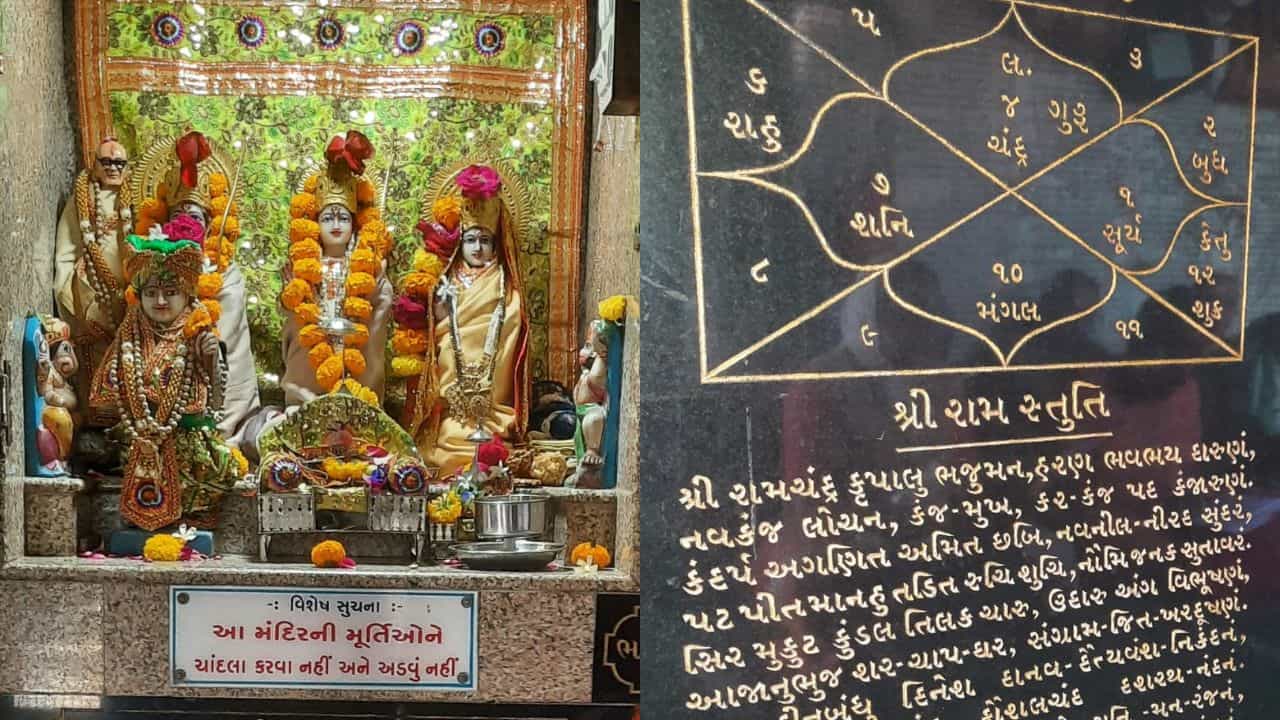 -: વિશેષ સુચના :-
આ મંદિરની મૂર્તિઓને
ચાંદલા કરવા નહીં અને અડવું નહીં.
૫
૩
લ.
૪ ગુરૂ
ચંદ્ર
૬
રાહુ
૨
બુધ
૭
શનિ
૧
સૂર્ય
કેતુ
૧૨
શુક્ર
૮
૧૦
મંગલ
૯
૧૧
શ્રી રામ સ્તુતિ
શ્રી રામચંદ્ર કૃપાલુ ભજુમન, હરણ ભવભય દારુણં,
નવકંજ લોચન, કંજ-મુખ, કર-કંજ પદ કંજારુણં.
કંદર્પ અગણિત અમિત છબિ, નવનીલ-નીરદ સુંદરં,
પટ પીત માનહુ તડિત રુચિ શુચિ, નૌમિ જનક સુતાવરં.
સિર મુકુટ કુંડલ તિલક ચારુ, ઉદારુ અંગ વિભૂષણં,
આજાનુભુજ શર-ચાપ-ધર, સંગ્રામ-જિત-ખરદૂષણં.
દીનબંધુ દિનેશ દાનવ-દૈત્યવંશ-નિકંદનં,
કૌશલચંદ દશરથ-નંદનં.
-મન-રંજનં,